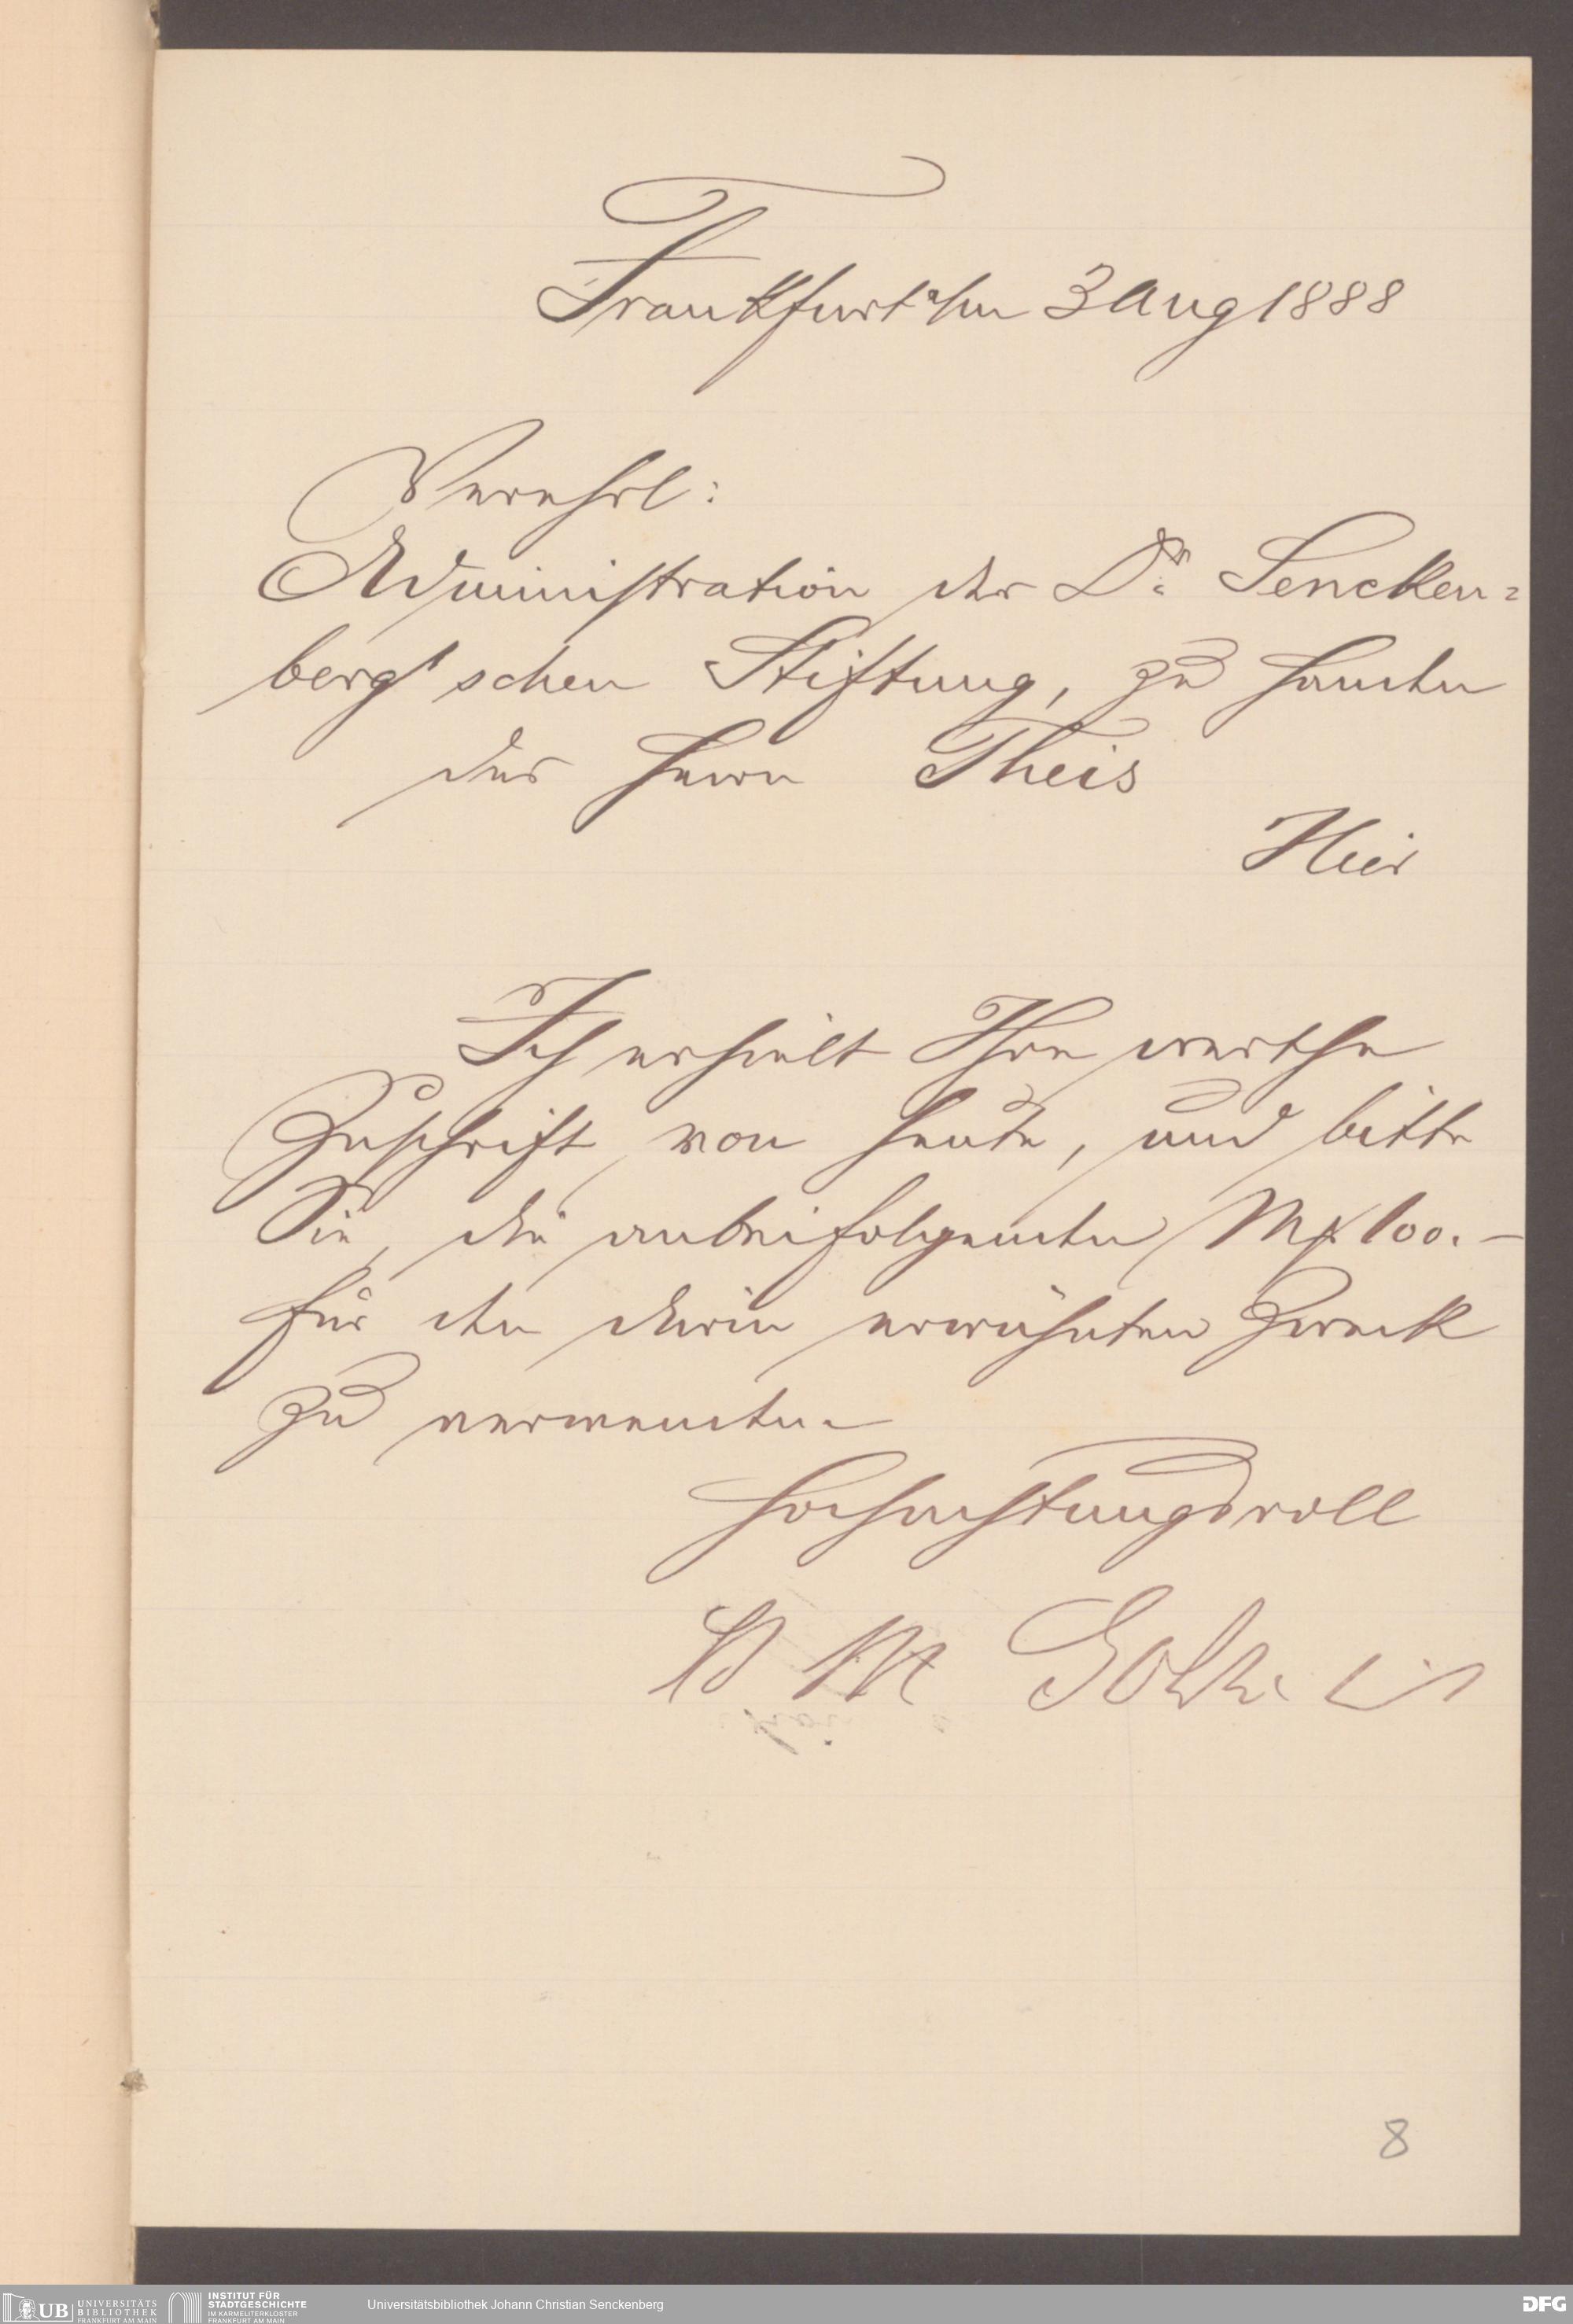 Frankfurt a/m 3 Aug 1888
Verehrl:
Administration der Dr. Sencken=
berg'schen Stiftung, zu Handen
des Herrn Theis
Hier
Ich erhielt Ihre werthe
Zuschrift von heute, und bitte
Sie, die anbeifolgenden Mk 100.–
für den darin erwähnten Zweck
zu verwenden.
Hochachtungsvoll
B M
8
UB UNIVERSITÄTS
BIBLIOTHEK
FRANKFURT AM MAIN
INSTITUT FÜR
STADTGESCHICHTE
IM KARMELITERKLOSTER
FRANKFURT AM MAIN
Universitätsbibliothek Johann Christian Senckenberg
DFG